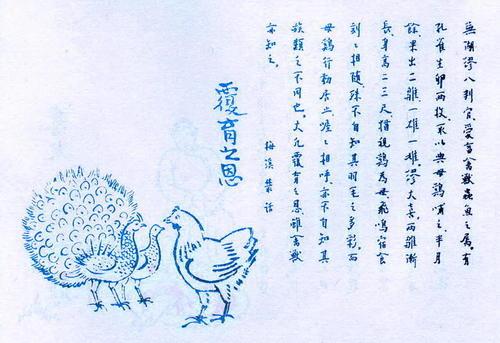 無湖繆八判官,愛畜禽獸蟲魚之屬,有
孔雀生卵兩枚,取以與母鷄哺之,半月
餘,果出二雛,一雄一雌,繆大喜,兩雛漸
長,身高二三尺,猶視鷄為母,飛鳴宿食,
刻〻相隨,殊不自知其羽毛之多彩,而
母鷄行動居止,喔〻相呼,亦不自知其
族類之不同也,大凡覆育之恩,雖禽獸
亦知之。
梅溪叢話
覆育之恩